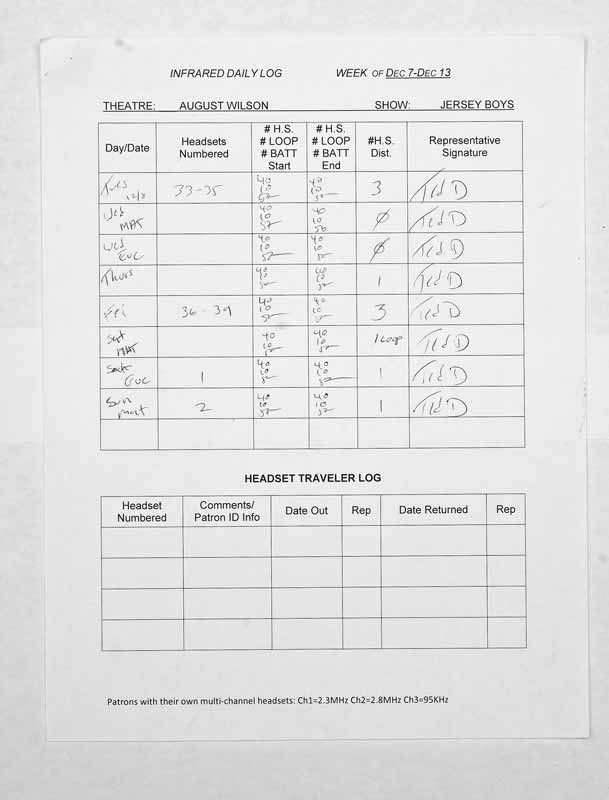 INFRARED DAILY LOG WEEK OF DEC 7-DEC 13
THEATRE: AUGUST WILSON SHOW: JERSEY BOYS
Day/Date
Headsets
Numbered
# H.S.
# LOOP
# BATT
Start
# H.S.
# LOOP
# BATT
End
#H.S.
Dist.
Representative
Signature
Tues
12/8
33-35
40
10
52
40
10
52
3
Ted D
Wed
MAT
40
10
52
40
10
50
Ø
Ted D
Wed
EVE
40
10
52
40
10
52
Ø
Ted D
Thurs
40
10
52
40
10
52
1
Ted D
Fri
36-39
40
10
52
40
10
52
3
Ted D
Sat
MAT
40
10
52
40
10
52
1 Loop
Ted D
Sat
EVE
1
40
10
52
40
10
52
1
Ted D
Sun
mat
2
40
10
52
40
10
52
1
Ted D
HEADSET TRAVELER LOG
Headset
Numbered
Comments/
Patron ID Info
Date Out
Rep
Date Returned
Rep
Patrons with their own multi-channel headsets: Ch1=2.3MHz Ch2=2.8MHz Ch3=95KHz